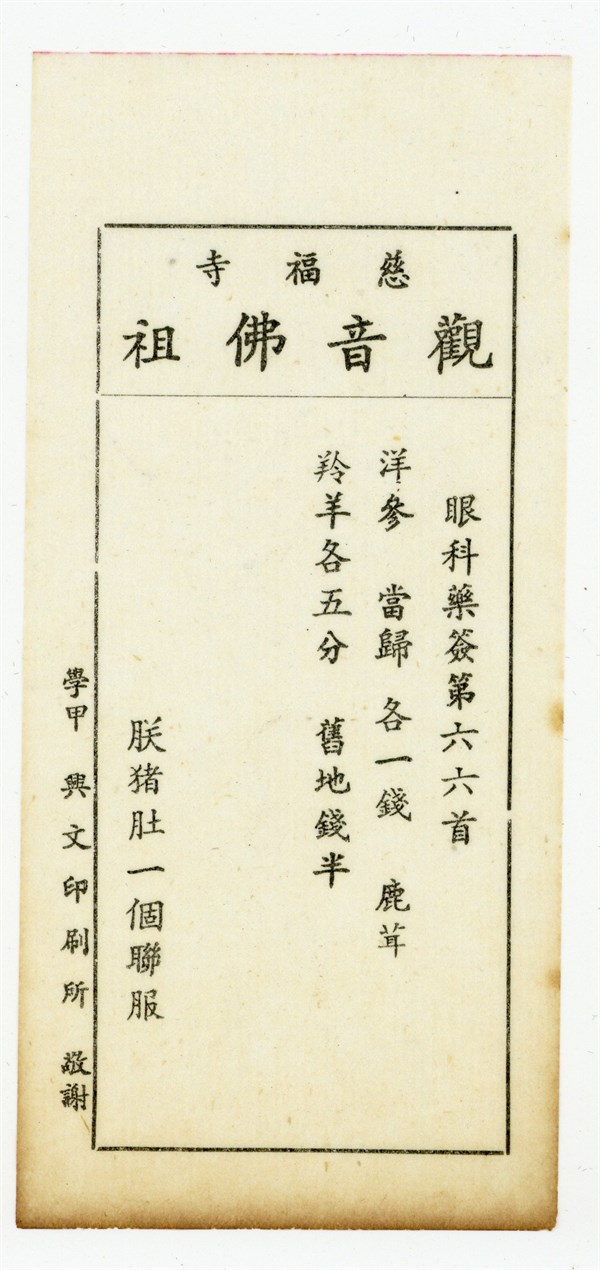 慈福寺
觀音佛祖
眼科藥簽第六六首
洋參　當歸　各一錢　鹿茸
羚羊各五分　舊地錢半
朕猪肚一個聯服
學甲　興文印刷所　敬謝